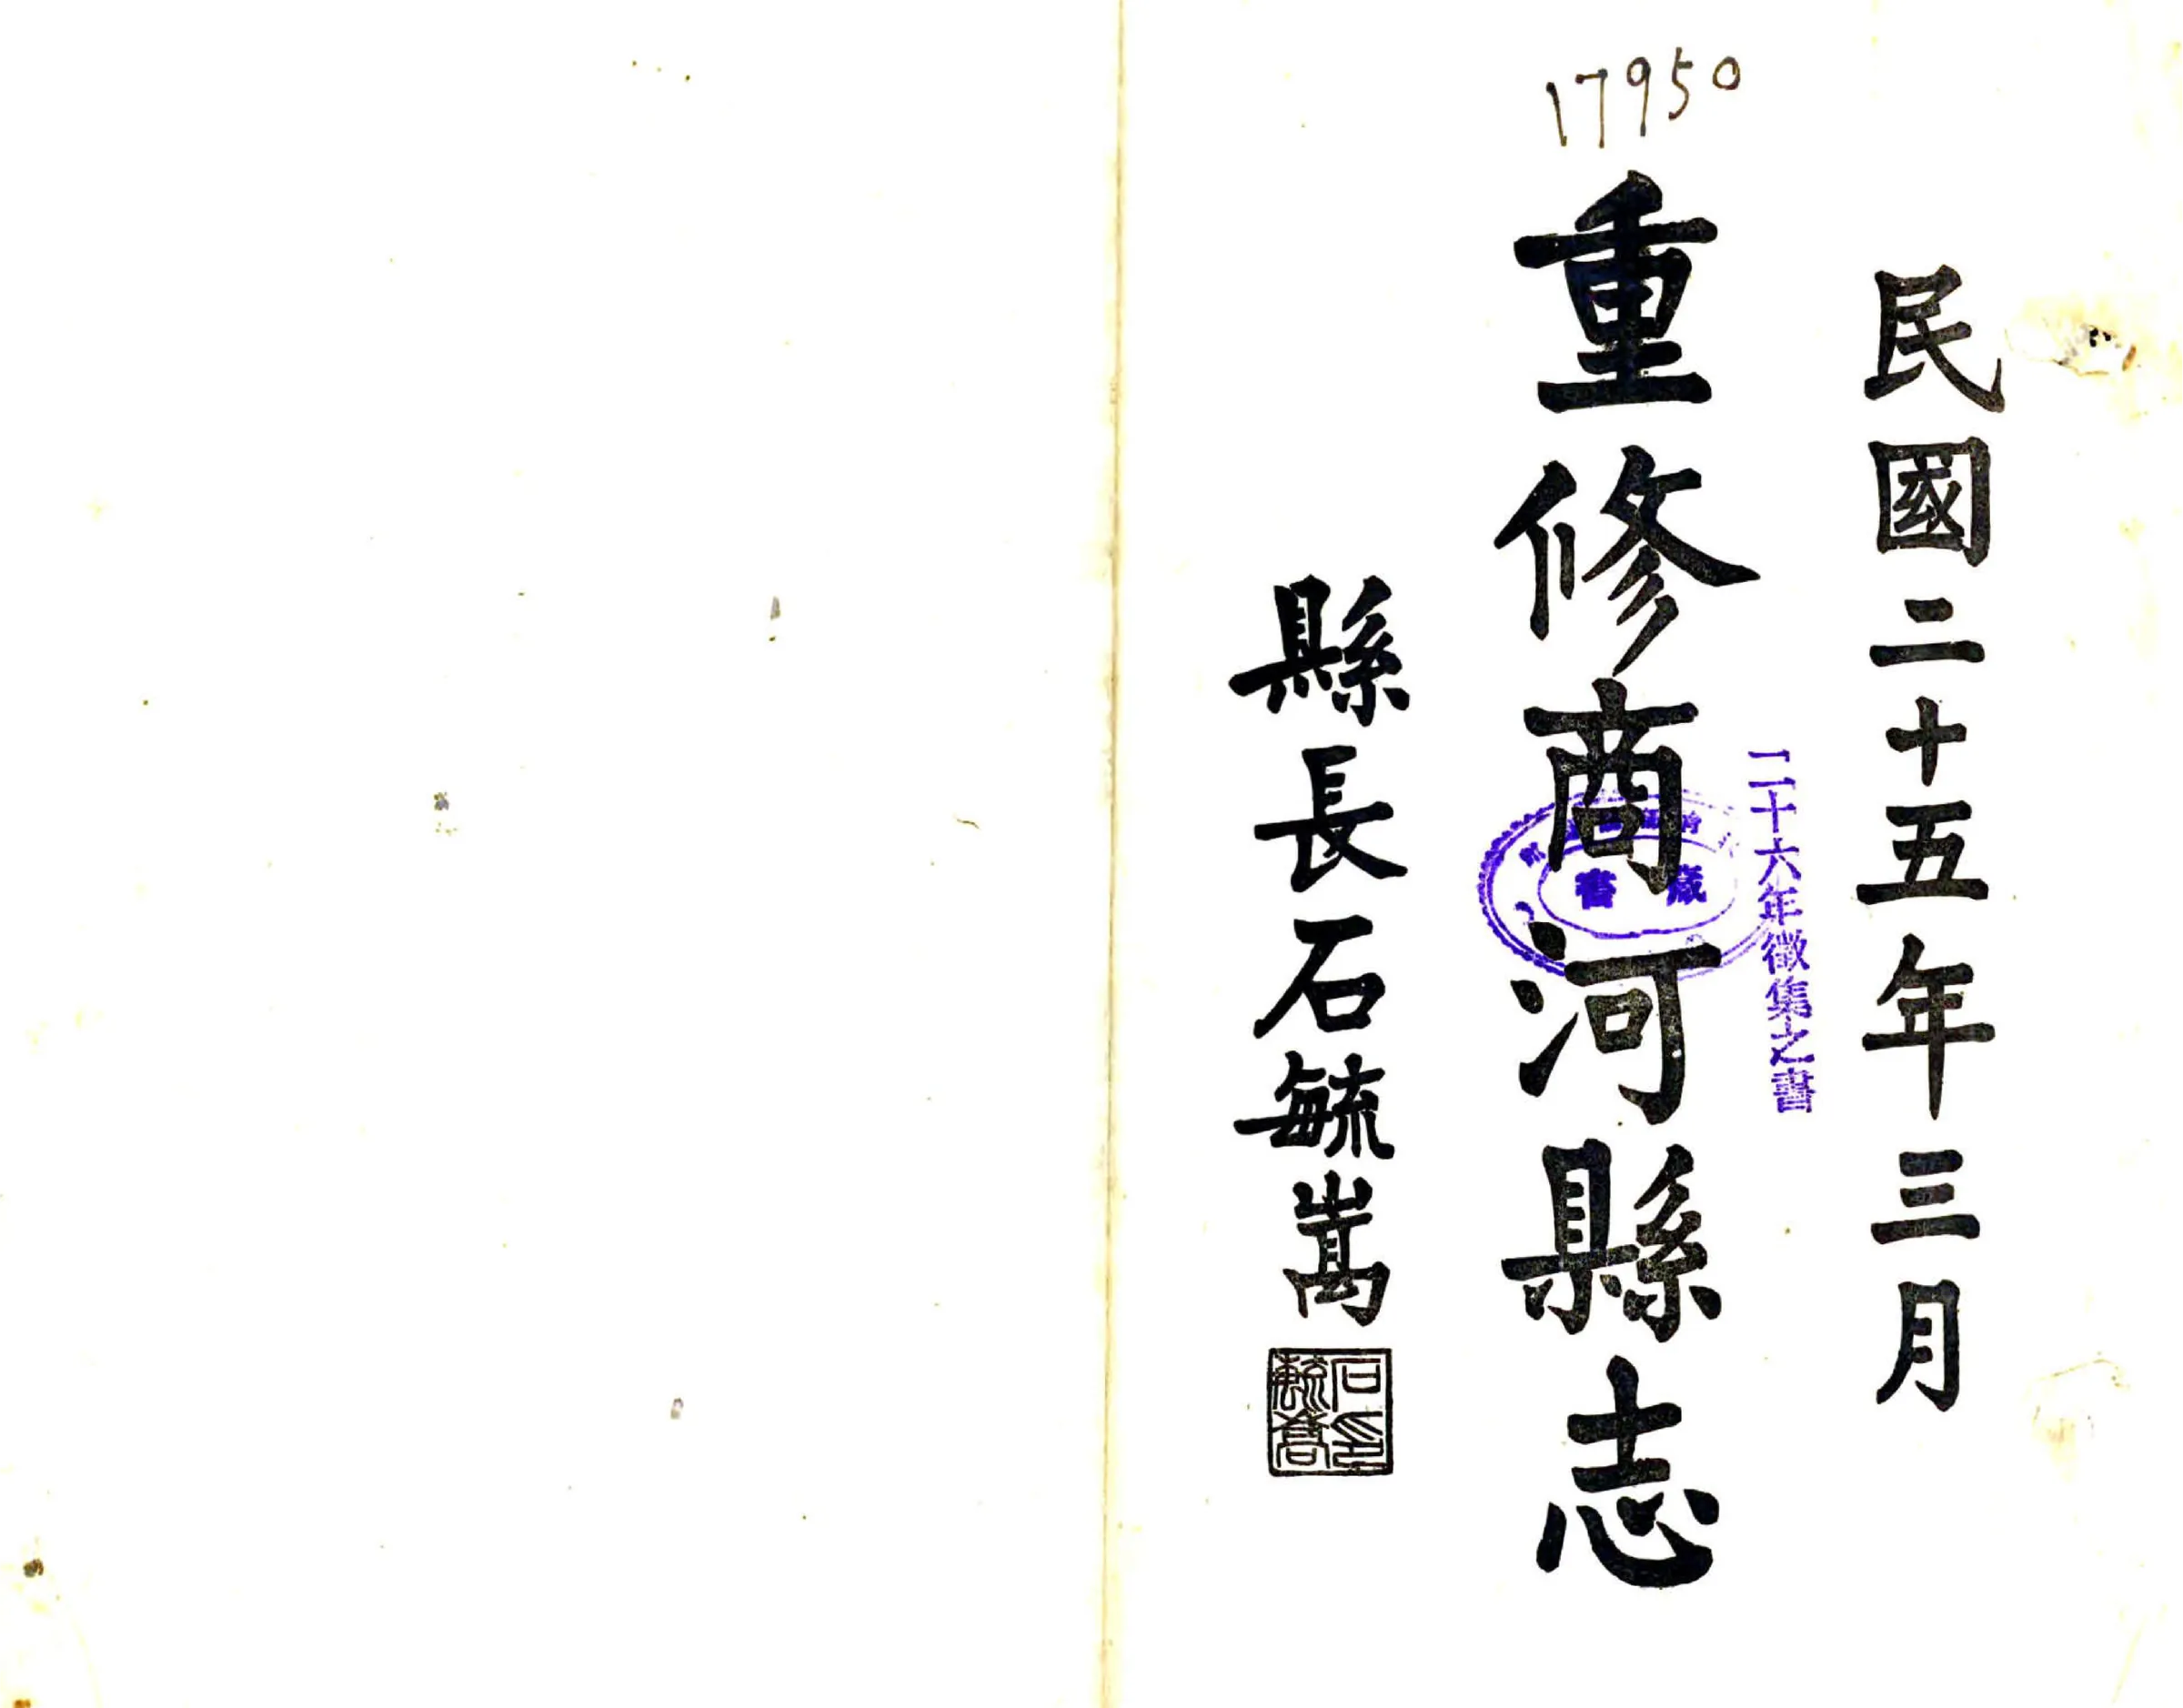 17950
民國二十五年三月
二十六年徵集之書
重修商河縣志
藏書
縣長石毓嵩
石印毓嵩